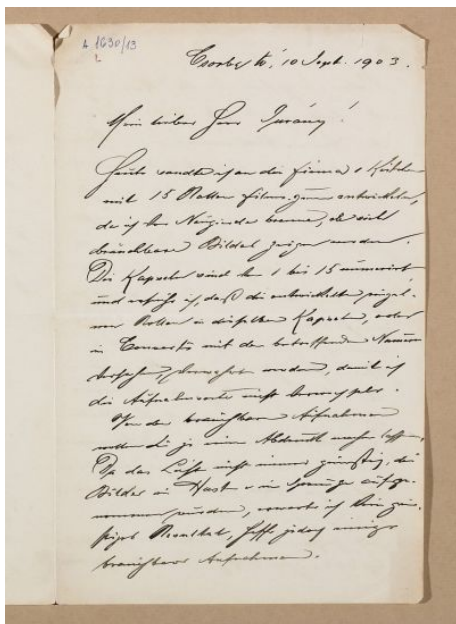 A 1690/13
Csorbató, 10 Sept. 1903.
Mein lieber Herr Divald!
Heute sandte ich an die Firma 1 Kistchen
mit 15 Rollen Films zum entwickeln,
da ich vor Neugierde brenne, ob sich
brauchbare Bilder zeigen werden.
Die Kapseln sind von 1 bis 15 numerirt
und ersuche ich, daß die entwickelten
Rollen in dieselben Kapseln, oder
in Couverts mit der betreffenden Numer
versehen, werden, damit ich
die Aufnahmeorte nicht verwechsle.
Von den brauchbaren Aufnahmen
wollen Sie je einen Abdruck machen lassen.
Da das Licht nicht immer günstig, die
Bilder in Hast u in
nommen wurden, erwarte ich kein
Resultat, hoffe jedoch einige
brauchbare Aufnahmen.